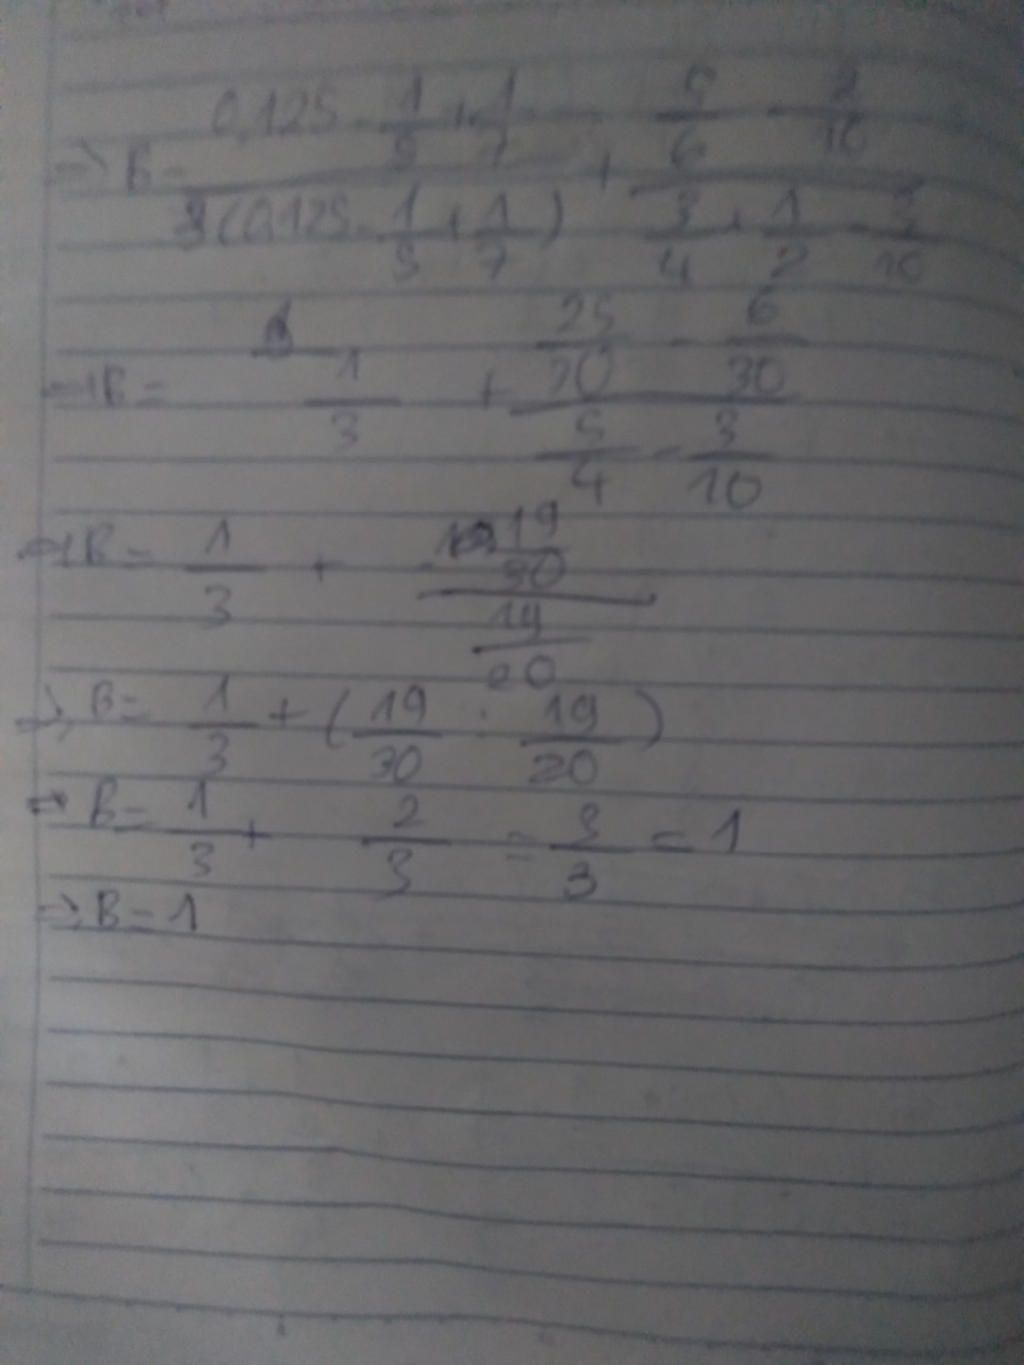 => B = (0,125 - 1/5 + 1/7) / (3(0,125 - 1/5 + 1/7)) + (5/6 - 2/10) / (3/4 + 1/2 - 3/10)
=> B = 1/3 + (25/30 - 6/30) / (5/4 - 3/10)
=> B = 1/3 + (19/30) / (19/20)
=> B = 1/3 + (19/30 : 19/20)
=> B = 1/3 + 2/3 = 3/3 = 1
=> B = 1